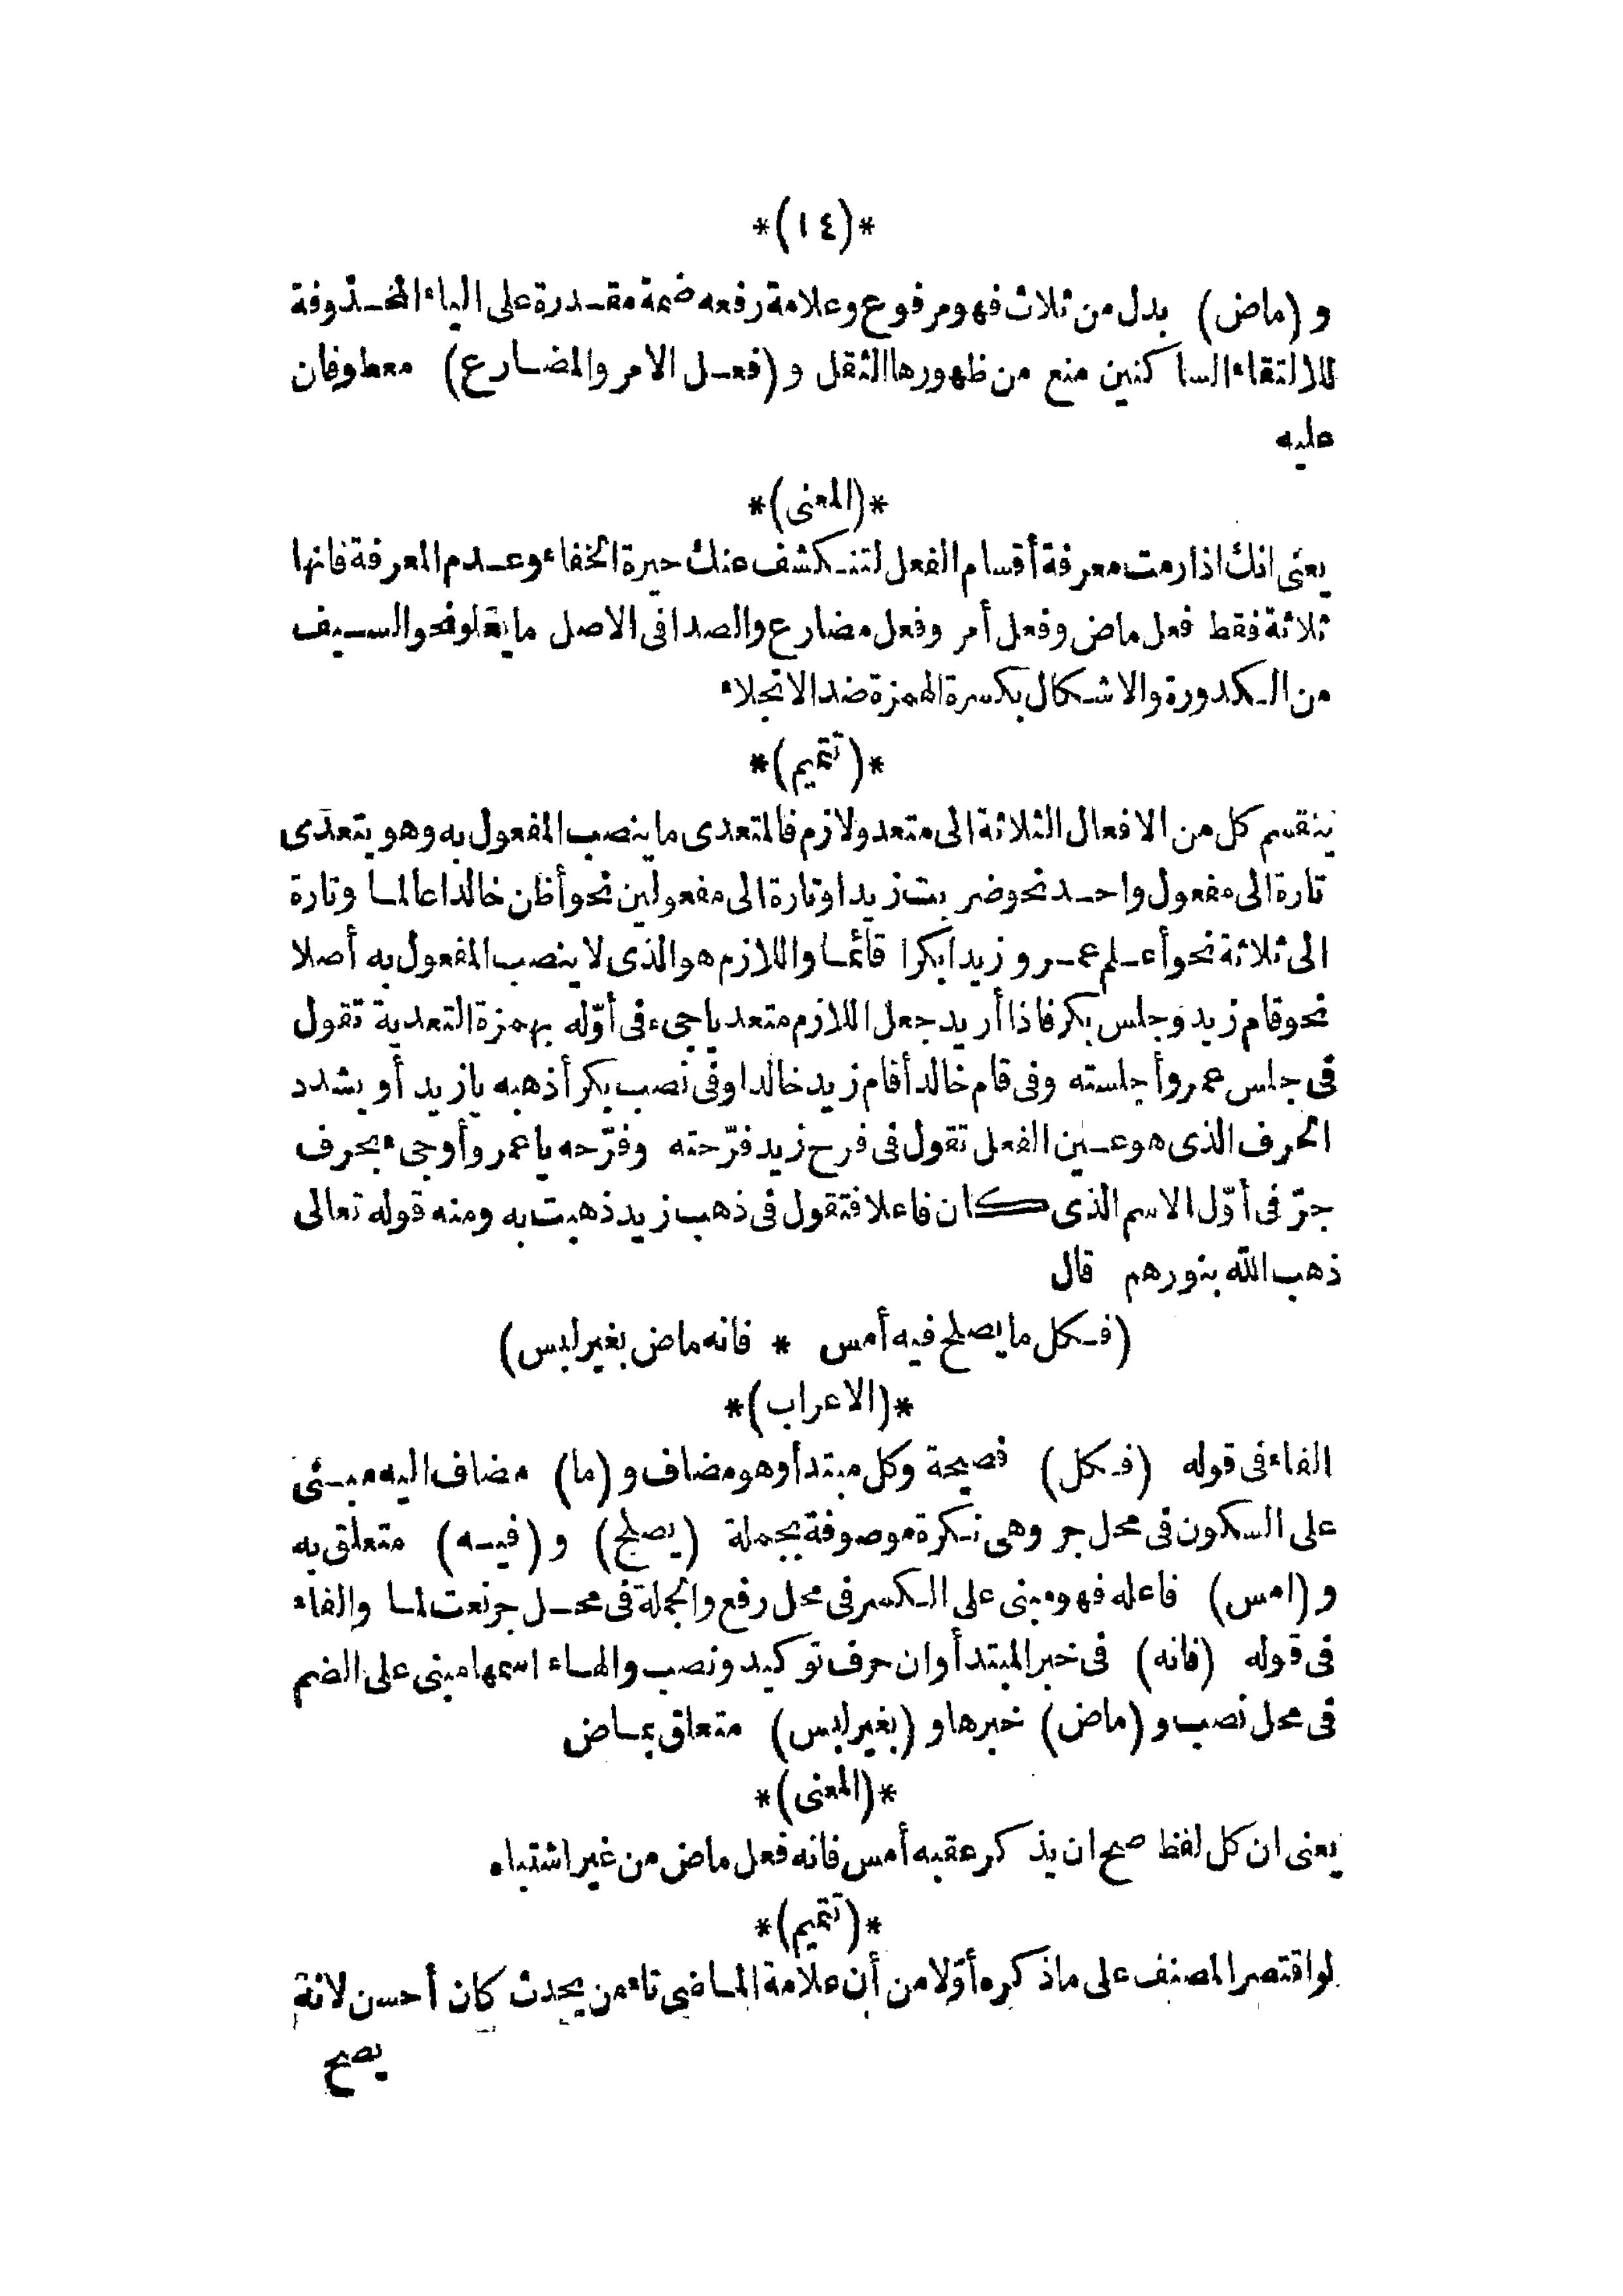 *(١٤)*
و (ماض) بدل من ثلاث فهو مرفوع وعلامة رفعه ضمة مقدرة على الياء المحذوفة
للالتقاء الساكنين منع من ظهورها الثقل و (فعل الامر والمضارع) معطوفان
عليه
*(المعنى)*
يعنى انك اذا رمت معرفة أقسام الفعل لتنكشف عنك حيرة الخفاء وعدم المعرفة فانها
ثلاثة فقط فعل ماض وفعل أمر وفعل مضارع والصدا فى الاصل ما يعلو نحو السيف
من الكدورة والاشكال بكسرة الهمزة ضد الانجلاء
*(تتميم)*
ينقسم كل من الافعال الثلاثة الى متعد ولازم فالمتعدى ما ينصب المفعول به وهو يتعدى
تارة الى مفعول واحد نحو ضربت زيدا وتارة الى مفعولين نحو أظن خالدا عالما وتارة
الى ثلاثة نحو أعلم عمرو زيدا بكرا قائما واللازم هو الذى لا ينصب المفعول به أصلا
نحو قام زيد وجلس بكر فاذا أريد جعل اللازم متعديا جىء فى أوّله بهمزة التعدية تقول
فى جلس عمرو أجلسته وفى قام خالد أقام زيد خالدا وفى نصب بكر أذهبه يا زيد أو يشدد
الحرف الذى هو عين الفعل تقول فى فرح زيد فرّحته وفرّحه يا عمرو أو جىء بحرف
جرّ فى أوّل الاسم الذى كان فاعلا فتقول فى ذهب زيد ذهبت به ومنه قوله تعالى
ذهب الله بنورهم قال
(فكل ما يصلح فيه أمس * فانه ماض بغير لبس)
*(الاعراب)*
الفاء فى قوله (فكل) فصيحة وكل مبتدأ وهو مضاف و (ما) مضاف اليه مبنى
على السكون فى محل جر وهى نكرة موصوفة بجملة (يصلح) و (فيه) متعلق به
و (امس) فاعله فهو مبنى على الكسر فى محل رفع والجملة فى محل جر نعت لما والفاء
فى قوله (فانه) فى خبر المبتدأ وان حرف توكيد ونصب والهاء اسمها مبنى على الضم
فى محل نصب و (ماض) خبرها و (بغير لبس) متعلق بماض
*(المعنى)*
يعنى ان كل لفظ صح ان يذكر عقبه أمس فانه فعل ماض من غير اشتباه
*(تتميم)*
لو اقتصر المصنف على ما ذكره أوّلا من أن علامة الماضى تاء من يحدث كان أحسن لانه
يصح